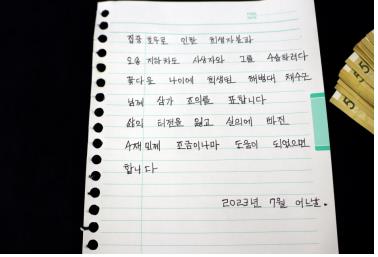 집중 호우로 인한 희생자분과
오송 지하차도 사상자와 그를 수습하려다
꽃다운 나이에 희생된 해병대 채수근
님께 삼가 조의를 표합니다
삶의 터전을 잃고 실의에 빠진
수재민께 조금이나마 도움이 되었으면
합니다
2023년 7월 어느날.